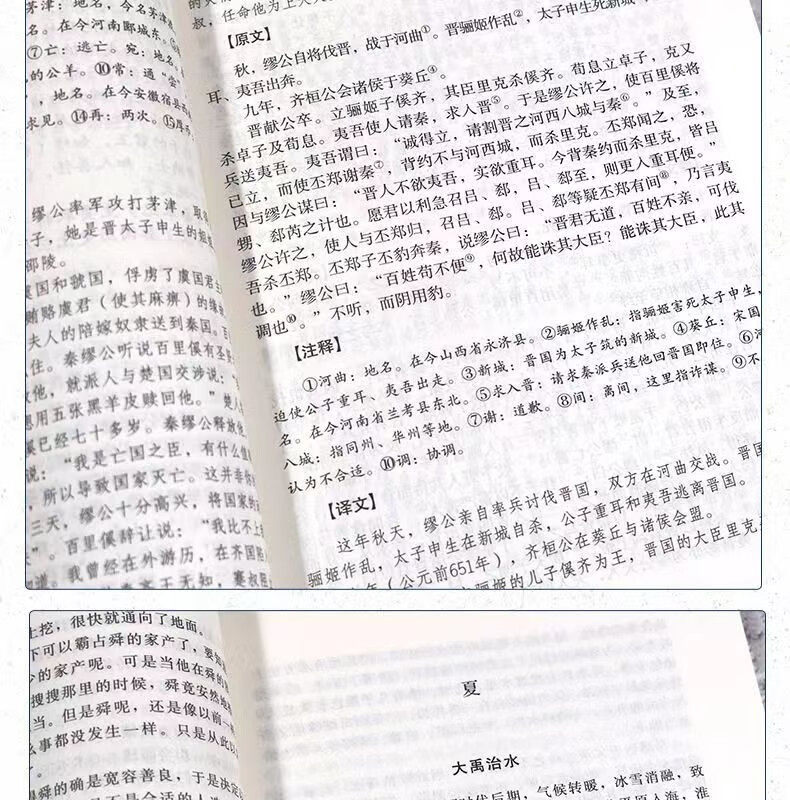 地名，今名茅津：
名。在今河南郾城东。
⑦亡：逃亡。宛：地名，
的公羊。⑩常：通“尝
，地名。在今安徽宿县西
求见。⑭再：两次。⑮厚
缪公率军攻打茅津，取
子，她是晋太子申生的姐
郾陵。
国和虢国，俘虏了虞国君
贿赂虞君（使其麻痹）的缘
夫人的陪嫁奴隶送到秦国。百
住。秦缪公听说百里傒有圣
他，就派人与楚国交涉说：
愿用五张黑羊皮赎回他。”楚
傒已经七十多岁。秦缪公释放他
说：“我是亡国之臣，有什么值
，所以导致国家灭亡。这并非你
三天，缪公十分高兴，将国家的
”。百里傒辞让说：“我比不上
知道。我曾经在外游历，在齐国
齐王无知，蹇叔
叔，任命他为上大夫
【原文】
秋，缪公自将伐晋，战于河曲①。晋骊姬作乱②，太子申生死新城
耳、夷吾出奔。
九年，齐桓公会诸侯于葵丘④。
晋献公卒。立骊姬子傒齐，其臣里克杀傒齐。荀息立卓子，克又
杀卓子及荀息。夷吾使人请秦，求入晋⑤。于是缪公许之，使百里傒将
兵送夷吾。夷吾谓曰：“诚得立，请割晋之河西八城与秦⑥。”及至，
已立，而使丕郑谢秦⑦，背约不与河西城，而杀里克。丕郑闻之，恐，
因与缪公谋曰：“晋人不欲夷吾，实欲重耳。今背秦约而杀里克，皆吕
甥、郤芮之计也。愿君以利急召吕、郤，吕、郤至，则更入重耳便。”
缪公许之，使人与丕郑归，召吕、郤。吕、郤等疑丕郑有间⑧，乃言夷
吾杀丕郑。丕郑子丕豹奔秦，说缪公曰：“晋君无道，百姓不亲，可伐
也。”缪公曰：“百姓苟不便⑨，何故能诛其大臣？能诛其大臣，此其
调也⑩。”不听，而阴用豹。
【注释】
①河曲：地名。在今山西省永济县。②骊姬作乱：指骊姬害死太子申生，
迫使公子重耳、夷吾出走。③新城：晋国为太子筑的新城。④葵丘：宋国
名。在今河南省兰考县东北。⑤求入晋：请求秦派兵送他回晋国即位。⑥河
八城：指同州、华州等地。⑦谢：道歉。⑧间：离间，这里指诈谋。⑨不
认为不合适。⑩调：协调。
【译文】
这年秋天，缪公亲自率兵讨伐晋国，双方在河曲交战。晋国
骊姬作乱，太子申生在新城自杀，公子重耳和夷吾逃离晋国。
年（公元前651年），齐桓公在葵丘与诸侯会盟。
骊姬的儿子傒齐为王，晋国的大臣里克
上挖，很快就通向了地面。
下可以霸占舜的家产了，要知
的家产呢。可是当他在舜的
搜搜那里的时候，舜竟安然地
当。但是舜呢，还是像以前一
么事都没发生一样。只是从此以
舜的确是宽容善良，于是决定
夏
大禹治水
时代后期，气候转暖，冰雪消融，致